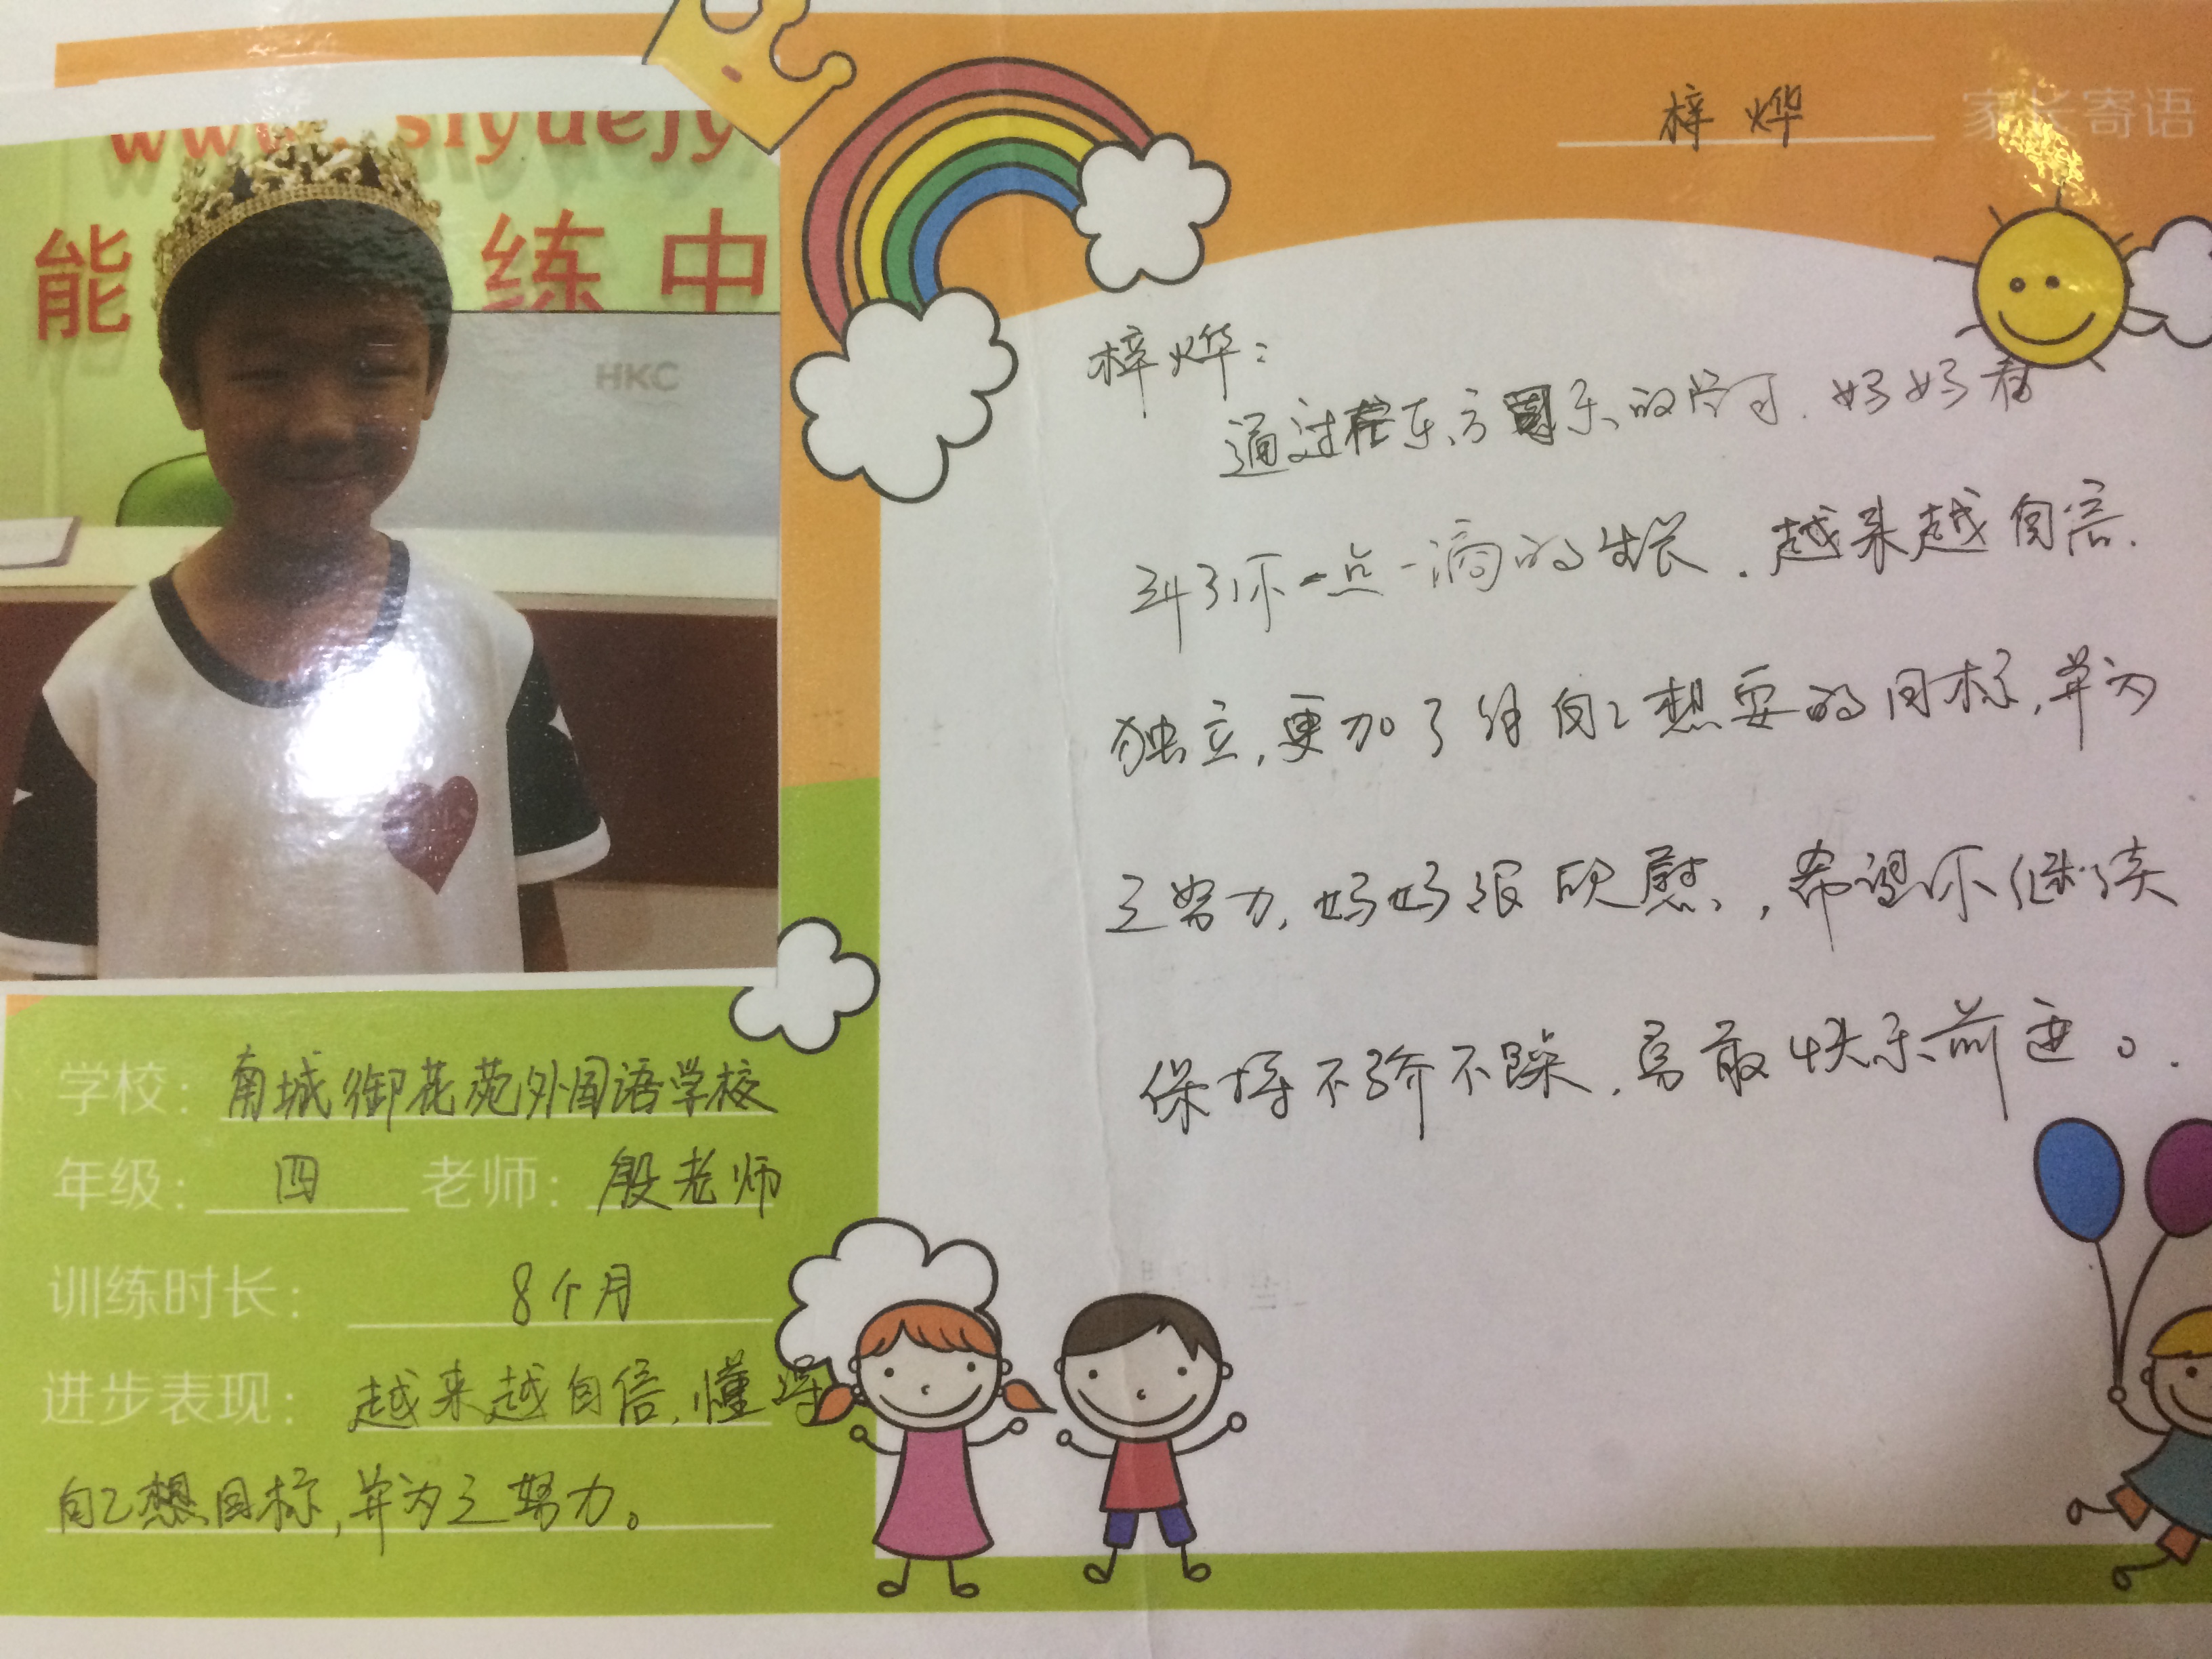 www.siyuejy
能 练中
HKC
学校：南城御花苑外国语学校
年级：四 老师：殷老师
训练时长：8个月
进步表现：越来越自信，懂得
自己想目标，并为之努力。
梓烨 家长寄语
梓烨：
通过在东方 乐的学习．妈妈看
到了你一点一滴的成长．越来越自信．
独立，更加了解自己想要的目标，并为
之努力，妈妈很欣慰，希望你继续
保持不骄不躁，勇敢快乐前进。